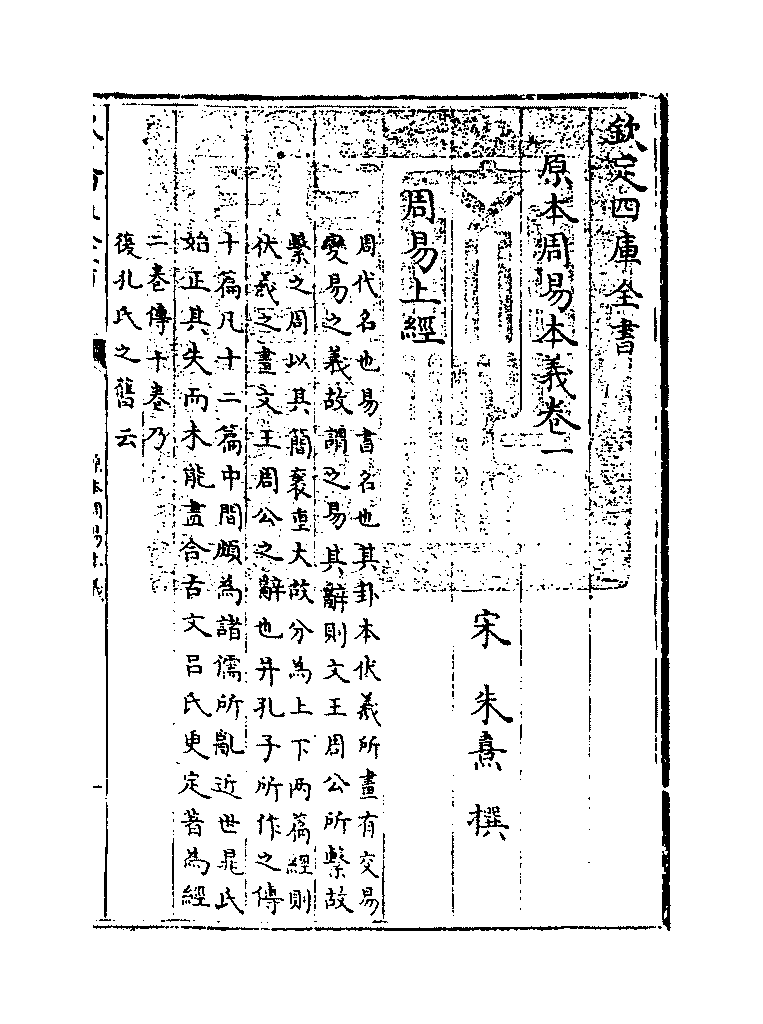 欽定四庫全書
原本周易本義卷一
宋 朱熹 撰
周易上經
周代名也易書名也其卦本伏羲所畫有交易
變易之義故謂之易其辭則文王周公所繫故
繫之周以其簡袠重大故分為上下兩篇經則
伏羲之畫文王周公之辭也并孔子所作之傳
十篇凡十二篇中間頗為諸儒所亂近世晁氏
始正其失而未能盡合古文吕氏更定著為經
二卷傳十卷乃
復孔氏之舊云
原本周易本義
一